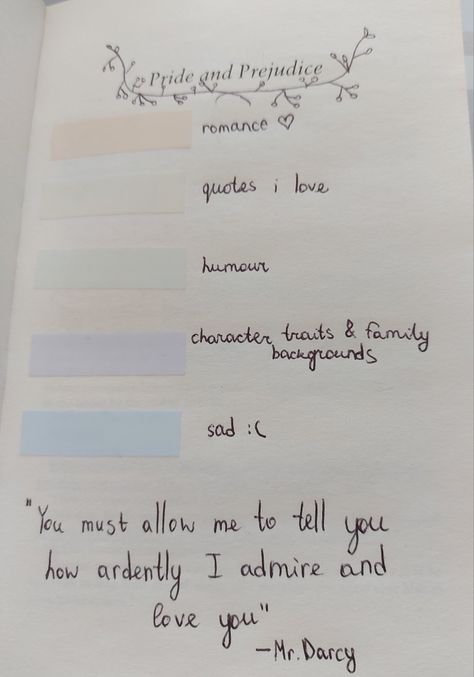 Pride and Prejudice
romance ♡
quotes i love
humour
character traits & family
backgrounds
sad :(
"You must allow me to tell you
how ardently I admire and
love you"
—Mr. Darcy